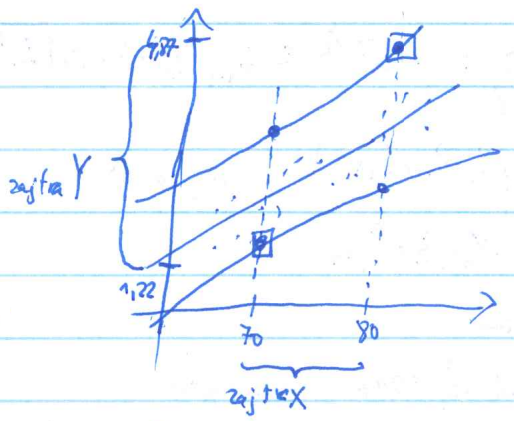 4,87
zajtra Y
1,22
70 80
zajtra X